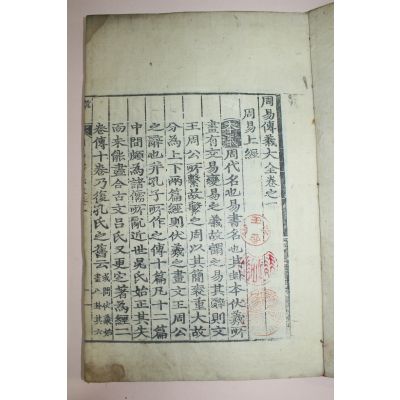 周易傳義大全卷之一
周易上經
周代名也易書名也其卦本伏羲所
畫有交易變易之義故謂之易其辭則文
王周公所繫故繫之周以其簡袠重大故
分為上下兩篇經則伏羲之畫文王周公
之辭也并孔子所作之傳十篇凡十二篇
中間頗為諸儒所亂近世晁氏始正其失
而未能盡合古文呂氏又更定著為經二
卷傳十卷乃復孔氏之舊云